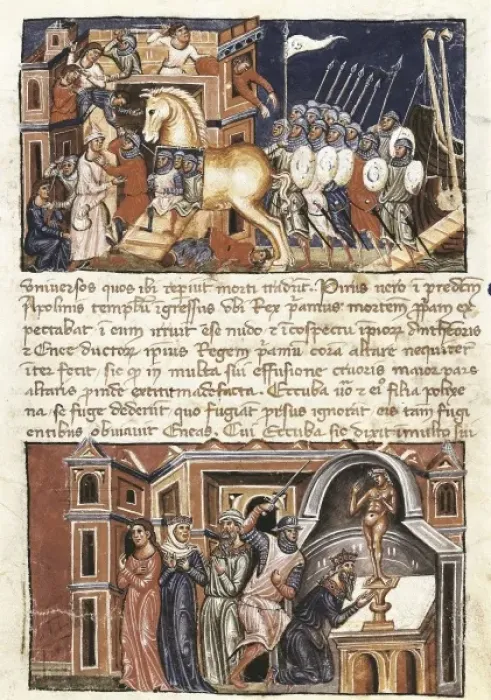 universos quos ibi repiut morti tradut. Pirus uero i predcm
Apolinis templũ igressus vbi Rex p̃amus mortem ppam ex
pectabat i eum irruit ese nudo & i cospectu ipor Anthenoris
& Enee ductor ipius Regem p̃amu cora altare nequiter
iter fecit, sic q in multa sui effusione cruoris maior pars
altaris pinde extitit madefacta. Eccuba uo & ei filia polixe
na se fuge dederut quo fugiat prsus ignorat. eis tam fugi
entibus obuiauit Eneas. Cui Eccuba sic dixit i multo sui